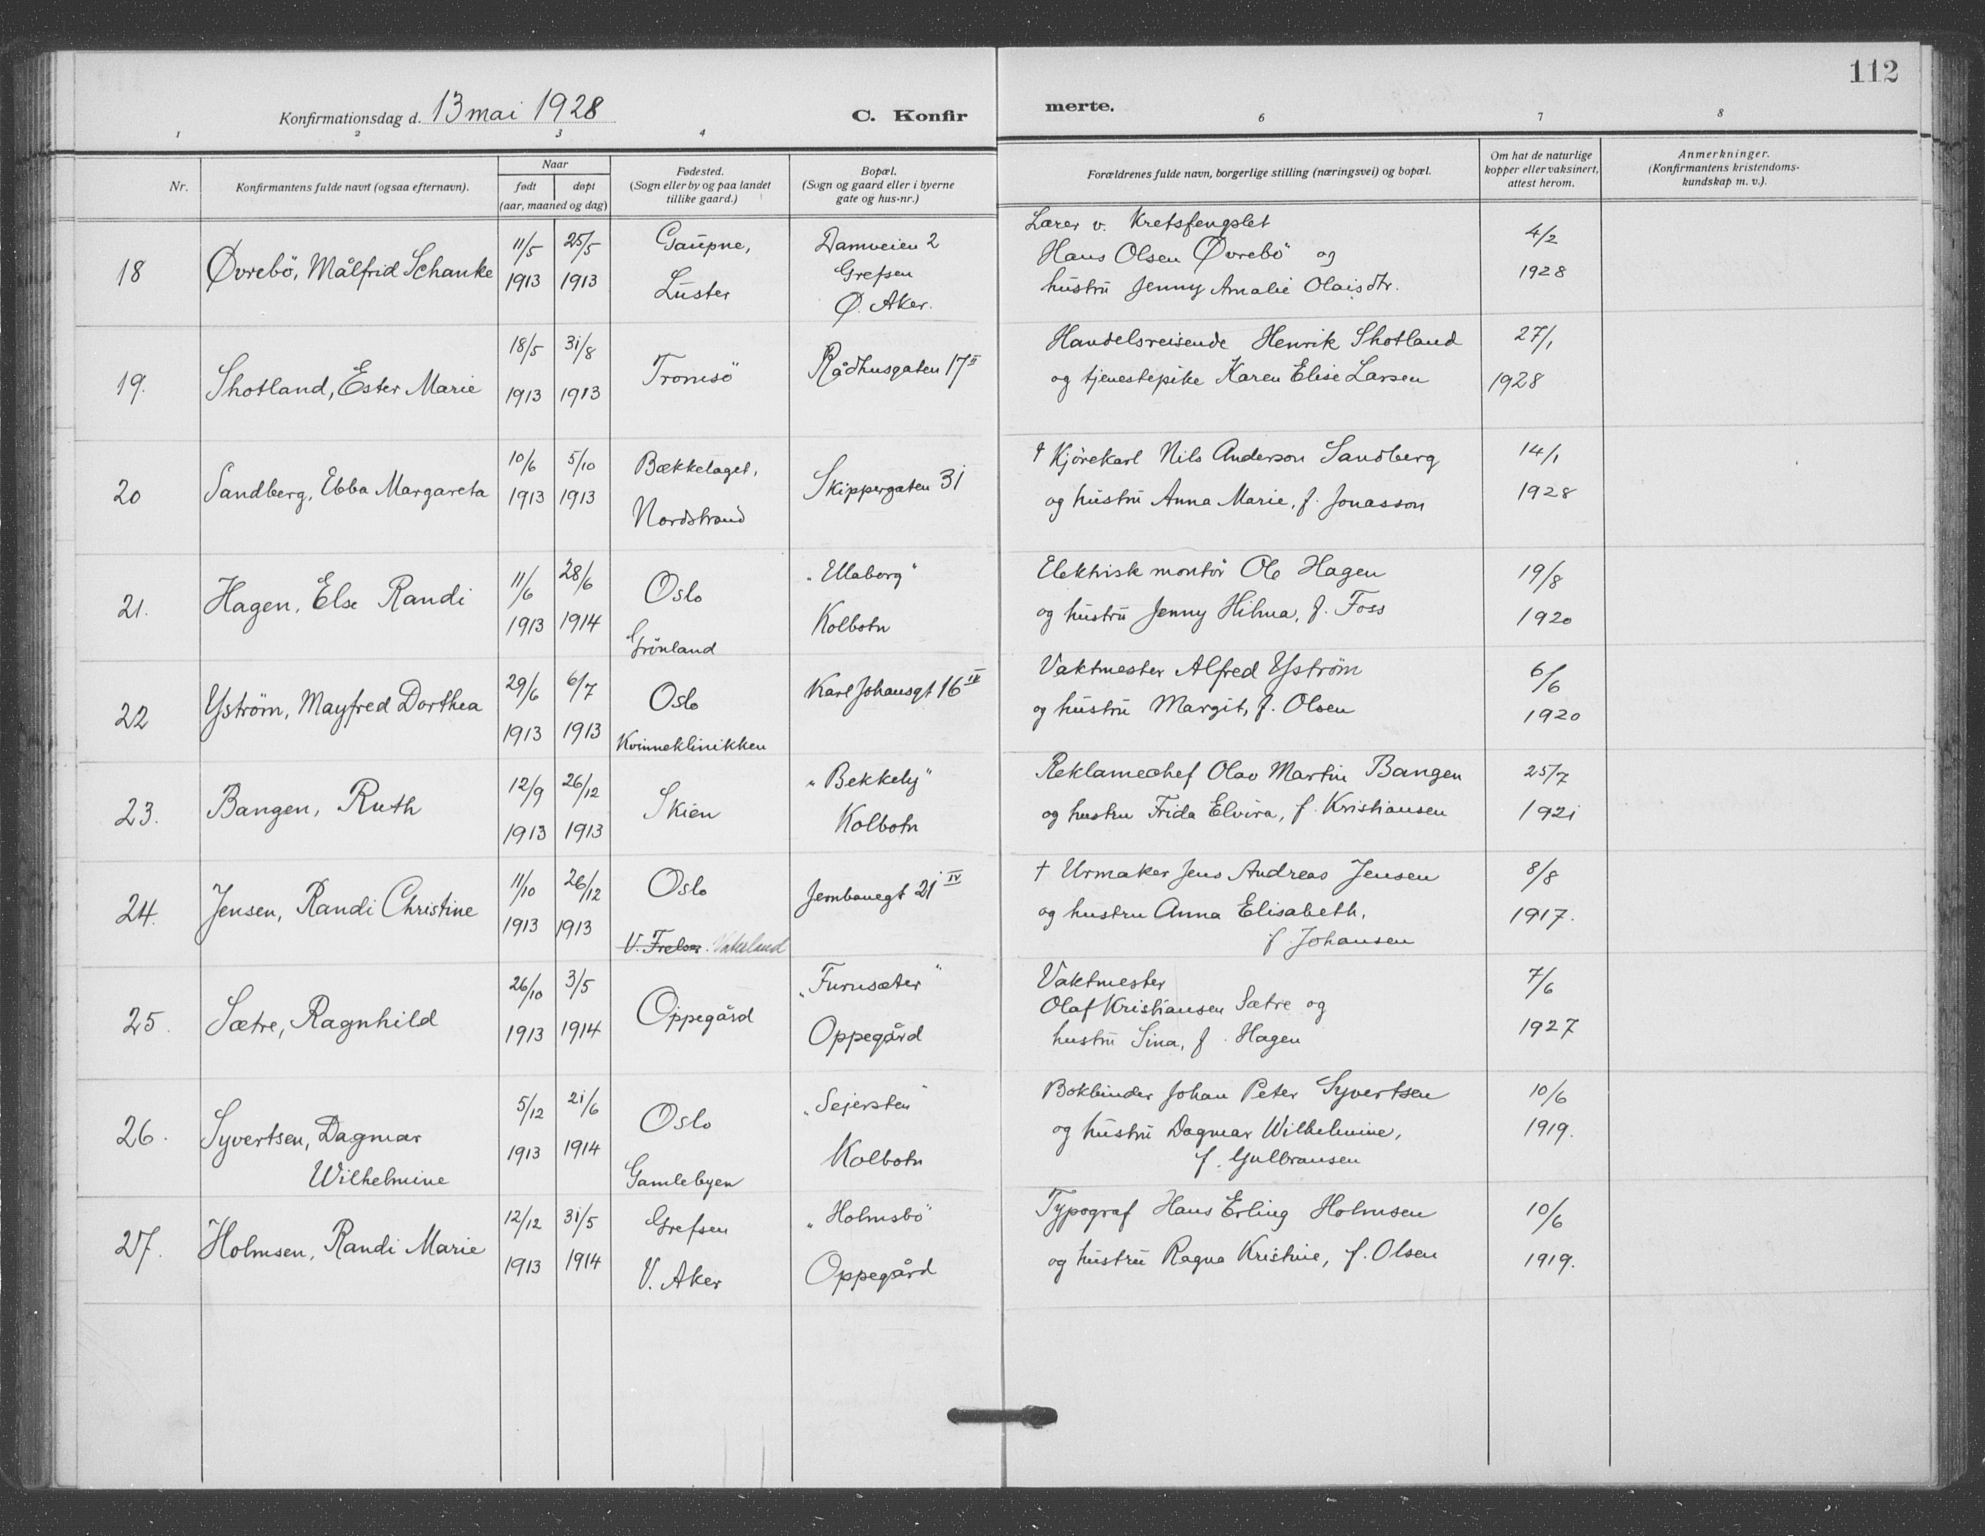 112
Konfirmationsdag d. 13 mai 1928
C. Konfir merte.
1 2 3 4 6 7 8
Nr.
Konfirmantens fulde navn (ogsaa efternavn).
Naar
født døpt
(aar, maaned og dag)
Fødested.
(Sogn eller by og paa landet
tillike gaard.)
Bopæl.
(Sogn og gaard eller i byerne
gate og hus-nr.)
Forældrenes fulde navn, borgerlige stilling (næringsvei) og bopæl.
Om hat de naturlige
kopper eller vaksinert,
attest herom.
Anmerkninger.
(Konfirmantens kristendoms-
kundskap m. v.).
18 Øvrebö, Målfrid Schanke
11/5 1913
25/5 1913
Gaupne,
Luster
Damveien 2
Grefsen
Ø. Aker.
Lærer v. Kretsfengslet
Hans Olsen Øvrebö og
hustru Jenny Amalie Olaisdtr.
4/2
1928
19. Shotland, Ester Marie
18/5 1913
31/8 1913
Tromsö
Rådhusgaten 17 II
Handelsreisende Henrik Shotland
og tjenestepike Karen Elise Larsen
27/1
1928
20 Sandberg, Ebba Margareta
10/6 1913
5/10 1913
Bækkelaget,
Nordstrand
Skippergaten 31
† Kjörekarl Nils Anderson Sandberg
og hustru Anna Marie, f. Jonasson
14/1
1928
21. Hagen, Else Randi
11/6 1913
28/6 1914
Oslo
Grönland
"Ellaborg"
Kolbotn
Elektrisk montör Ole Hagen
og hustru Jenny Hilma, f. Foss
19/8
1920
22 Yström, Mayfred Dorthea
29/6 1913
6/7 1913
Oslo
Kvinneklinikken
Karl Johansgt 16 IV
Vaktmester Alfred Yström
og hustru Margit, f. Olsen
6/6
1920
23. Bangen, Ruth
12/9 1913
26/12 1913
Skien
"Bekkely"
Kolbotn
Reklamechef Olav Martin Bangen
og hustru Frida Elvira, f. Kristiansen
25/7
1921
24. Jensen, Randi Christine
11/10 1913
26/12 1913
Oslo
V. Frelser.
Jernbanegt 21 IV
† Urmaker Jens Andreas Jensen
og hustru Anna Elisabeth,
f Johansen
8/8
1917.
25. Sætre, Ragnhild
26/10 1913
3/5 1914
Oppegård
"Furusæter"
Oppegård
Vaktmester
Olaf Kristiansen Sætre og
hustru Sina, f. Hagen
7/6
1927
26. Syvertsen, Dagmar
Wilhelmine
5/12 1913
21/6 1914
Oslo
Gamlebyen
"Sejersten"
Kolbotn
Bokbinder Johan Peter Syvertsen
og hustru Dagmar Wilhelmine,
f. Gulbransen
10/6
1919.
27. Holmsen, Randi Marie
12/12 1913
31/5 1914
Grefsen
V. Aker
"Holmsbö"
Oppegård
Typograf Hans Erling Holmsen
og hustru Ragna Kristine, f. Olsen
10/6
1919.